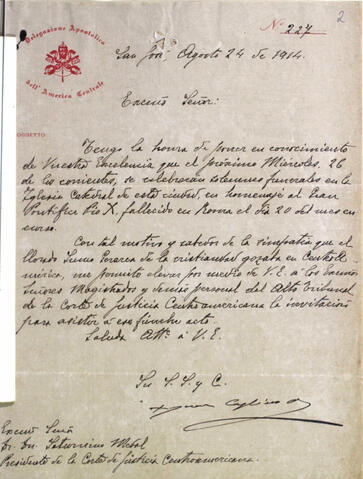 Delegazione Apostolica
dell'America Centrale
Nº 227
2
San José, Agosto 24 de 1914.
OGGETTO
Excmo Señor:
Tengo la honra de poner en conocimiento
de Vuestra Excelencia que el próximo Miércoles, 26
de los corrientes, se celebrarán solemnes funerales en la
Iglesia Catedral de esta ciudad, en homenaje al Gran
Pontífice Pío X, fallecido en Roma el día 20 del mes en
curso.
Con tal motivo y sabedor de la simpatía que el
llorado Sumo Jerarca de la cristiandad gozaba en Centro-
América, me permito elevar por medio de V. E. á los Excmos
Señores Magistrados y demás personal del Alto Tribunal
de la Corte de Justicia Centroamericana la invitación
para asistir á ese fúnebre acto.
Saluda Attº á V. E.
Su S. S. y C.
Excmo Señor
Dr. Dn. Saturnino Medal
Presidente de la Corte de Justicia Centroamericana.